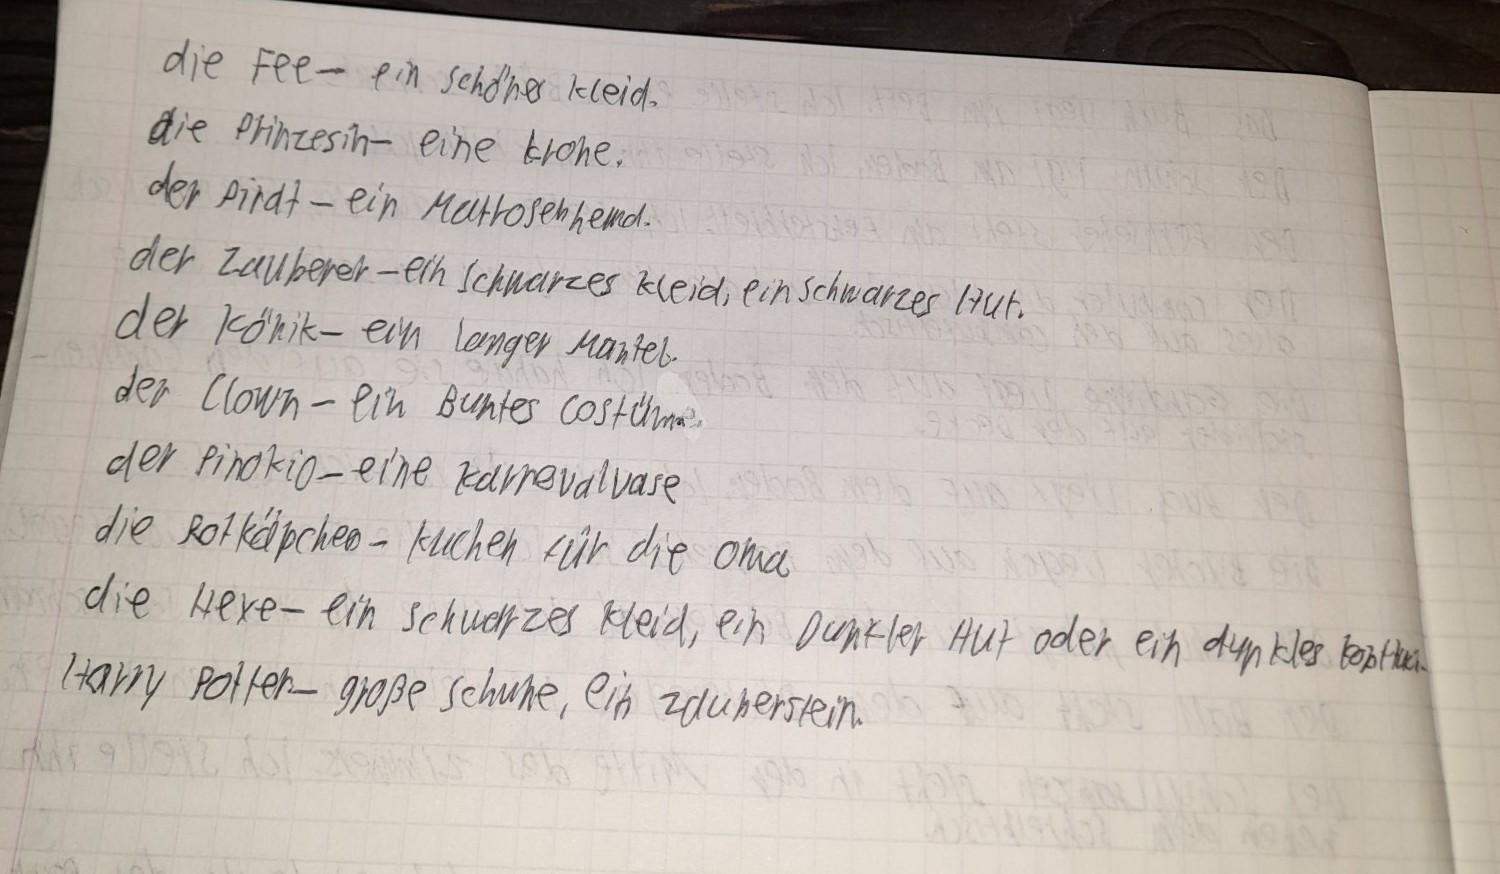 die Fee – ein schönes Kleid.
die Prinzesin – eine krone.
der Pirat – ein Matrosenhemd.
der Zauberer – ein schwarzes Kleid, ein schwarzes Hut.
der Könik – ein langer Mantel.
der Clown – ein Buntes Costüme.
der Pinokio – eine Karnevalvase
die Rotkäpchen – Kuchen für die Oma
die Hexe – ein schwarzes Kleid, ein Dunkler Hut oder ein dunkles
Harry Potter – große Schuhe, ein zauberstein.